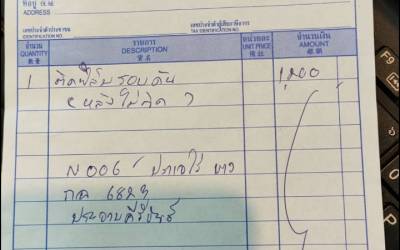 ที่อยู่
ADDRESS
เลขประจำตัวประชาชน
IDENTIFICATION NO.
เลขประจำตัวผู้เสียภาษีอากร
TAX IDENTIFICATION NO.
จำนวน รายการ หน่วยละ จำนวนเงิน
QUANTITY DESCRIPTION UNIT PRICE AMOUNT
1 ติดฟิล์มรอบคัน
(หลังไม่ติด)
ขาว
กค 6823
ประจวบคีรีขันธ์
F9